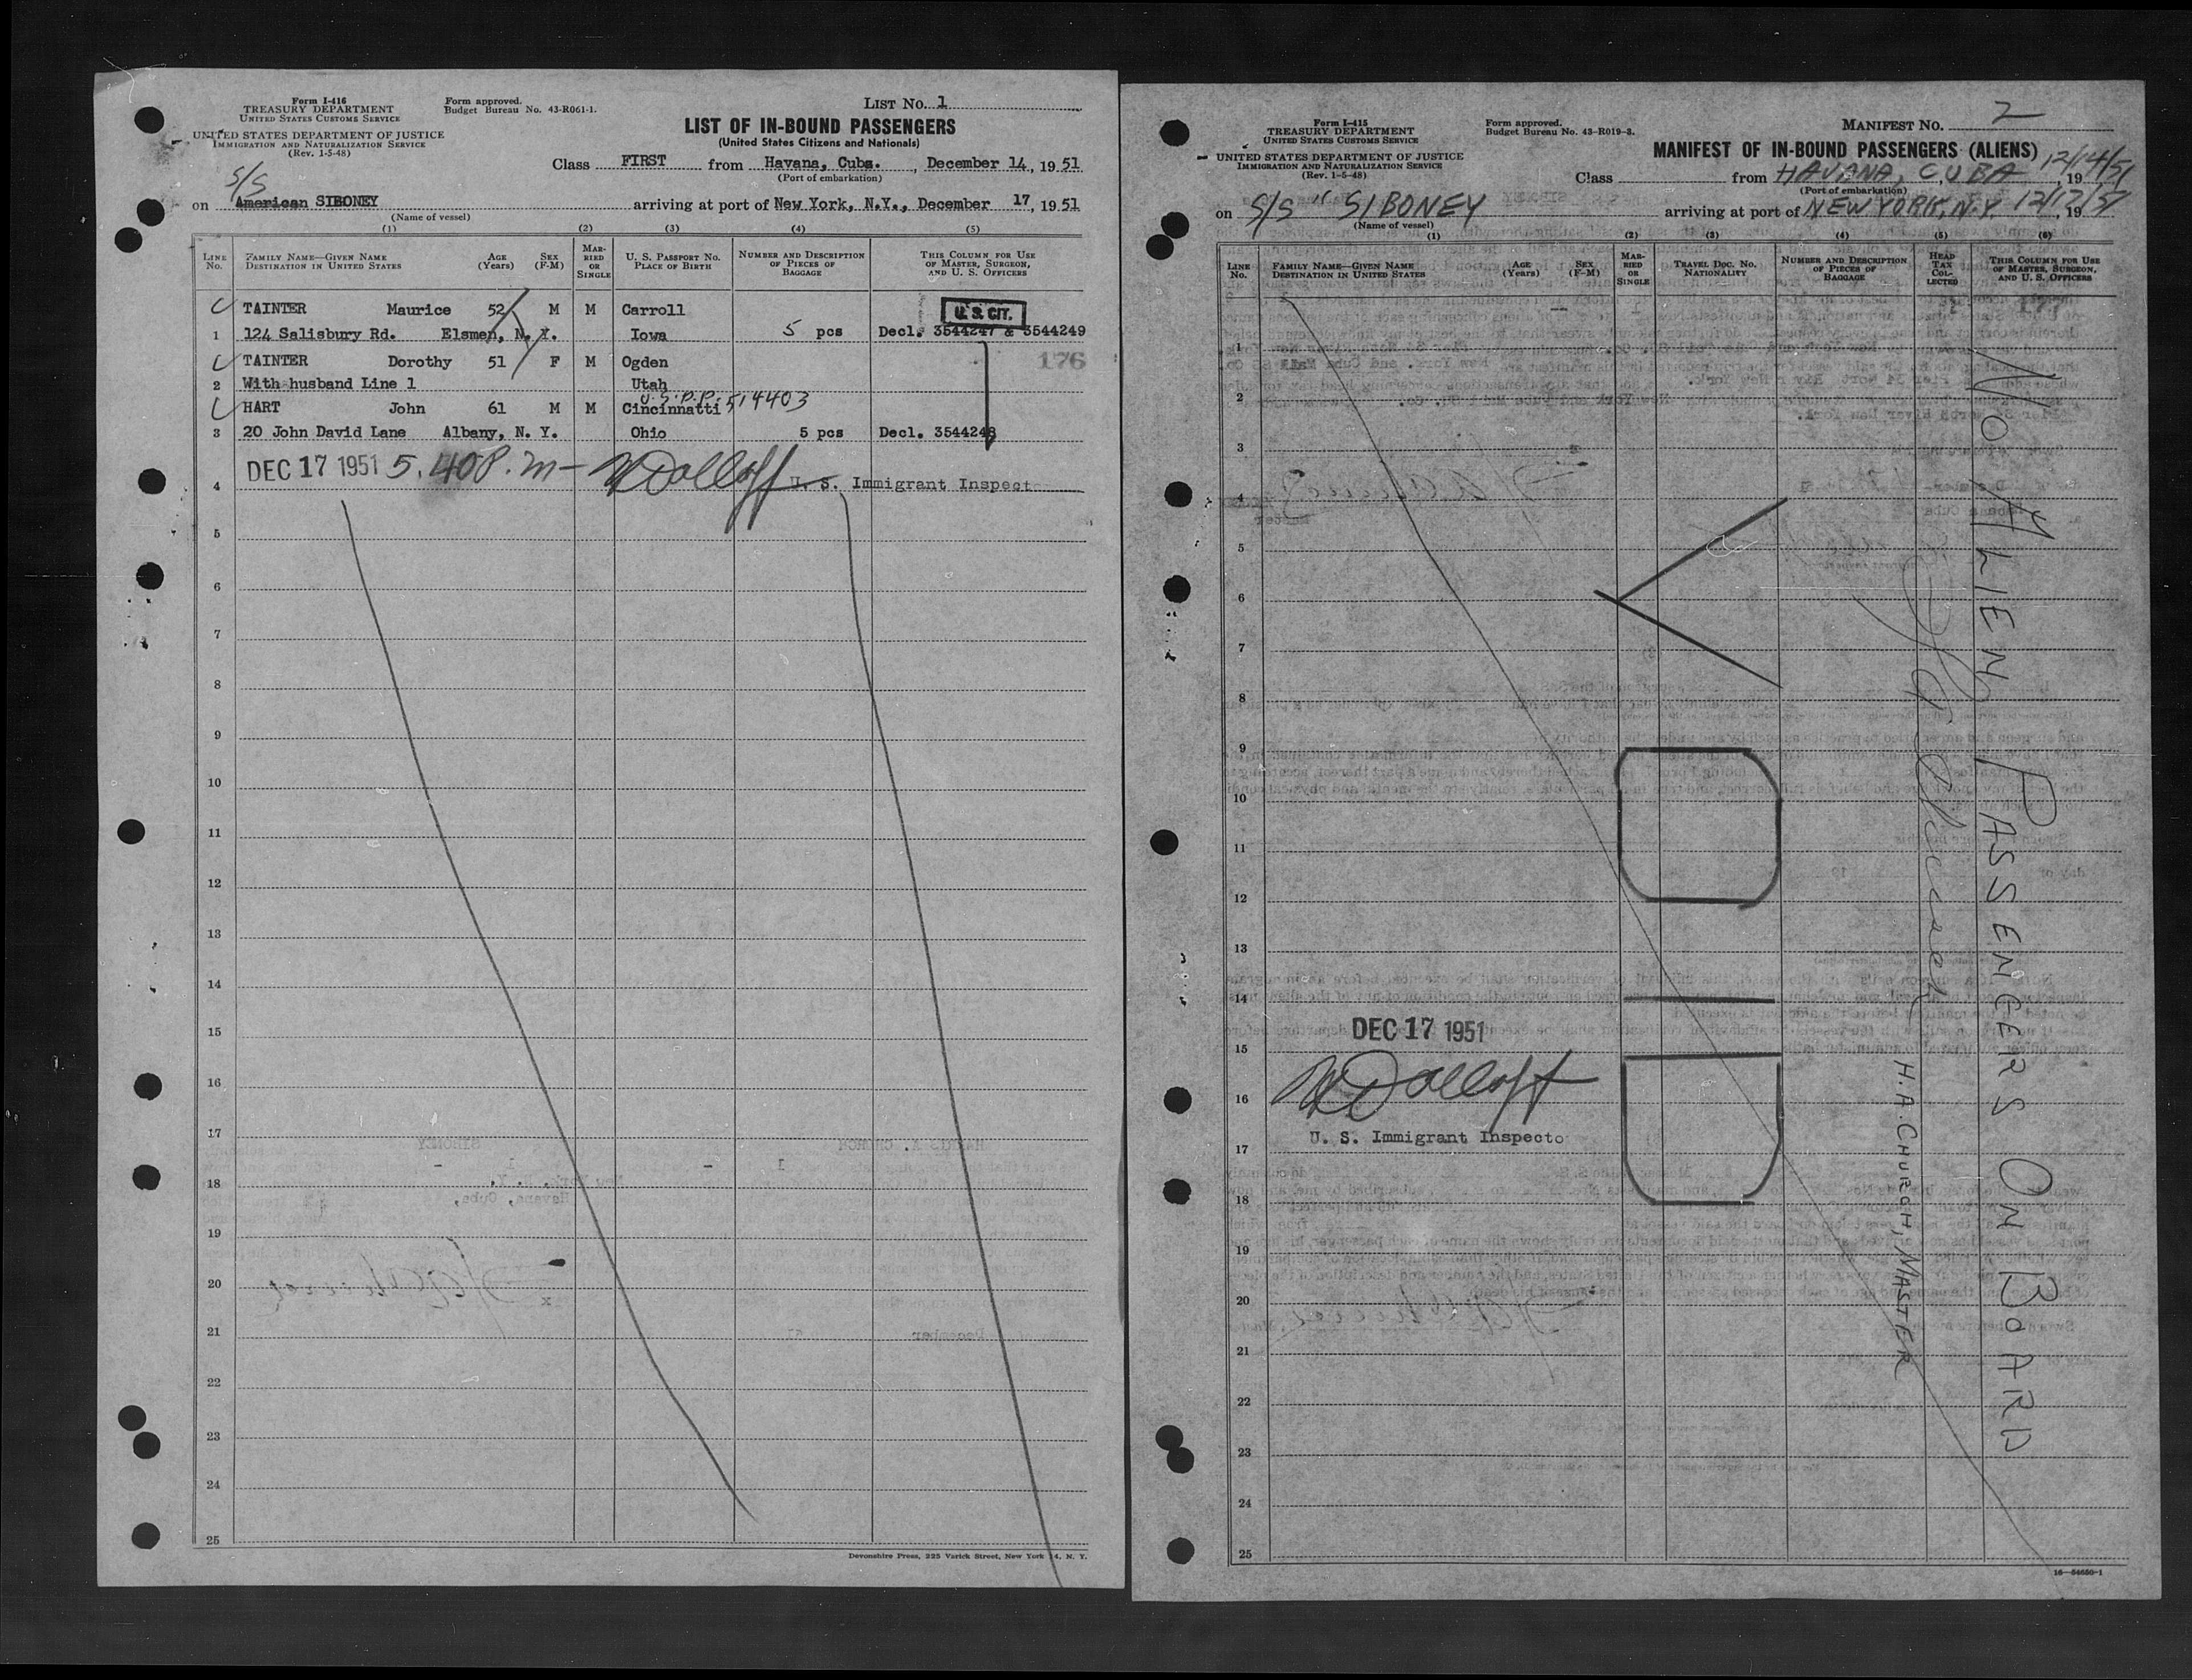 Form I-416
TREASURY DEPARTMENT
UNITED STATES CUSTOMS SERVICE
UNITED STATES DEPARTMENT OF JUSTICE
IMMIGRATION AND NATURALIZATION SERVICE
(Rev. 1-5-48)
Form approved.
Budget Bureau No. 43-R061-1.
LIST NO. 1
LIST OF IN-BOUND PASSENGERS
(United States Citizens and Nationals)
Class FIRST from Havana, Cuba. , December 14, 1951
(Port of embarkation)
S/S
on American SIBONEY arriving at port of New York, N.Y., December 17, 1951
(Name of vessel)
(1) (2) (3) (4) (5)
LINE NO. FAMILY NAME—GIVEN NAME DESTINATION IN UNITED STATES AGE (Years) SEX (F-M) MARRIED OR SINGLE U. S. PASSPORT NO. PLACE OF BIRTH NUMBER AND DESCRIPTION OF PIECES OF BAGGAGE THIS COLUMN FOR USE OF MASTER, SURGEON, AND U. S. OFFICERS
TAINTER Maurice 52 M M Carroll U.S. CIT.
1 124 Salisbury Rd. Elsmen, N.Y. Iowa 5 pcs Decl. 3544247 & 3544249
TAINTER Dorothy 51 F M Ogden 176
2 With husband Line 1 Utah
U.S.P.P. 514403
HART John 61 M M Cincinnatti
3 20 John David Lane Albany, N. Y. Ohio 5 pcs Decl. 3544248
DEC 17 1951 5.40 P.m— U. S. Immigrant Inspect
4
5
6
7
8
9
10
11
12
13
14
15
16
17
18
19
20
21
22
23
24
25
Devonshire Press, 225 Varick Street, New York 14, N. Y.
Form I-415
TREASURY DEPARTMENT
UNITED STATES CUSTOMS SERVICE
UNITED STATES DEPARTMENT OF JUSTICE
IMMIGRATION AND NATURALIZATION SERVICE
(Rev. 1-5-48)
Form approved.
Budget Bureau No. 43-R019-3.
MANIFEST NO. 2
MANIFEST OF IN-BOUND PASSENGERS (ALIENS)
Class from HAVANA, CUBA 12/14/51 , 19
(Port of embarkation)
on S/S "SIBONEY arriving at port of NEW YORK, N.Y. 12/17/51 , 19
(Name of vessel)
(1) (2) (3) (4) (5) (6)
LINE NO. FAMILY NAME—GIVEN NAME DESTINATION IN UNITED STATES AGE (Years) SEX (F-M) MARRIED OR SINGLE TRAVEL DOC. NO. NATIONALITY NUMBER AND DESCRIPTION OF PIECES OF BAGGAGE HEAD TAX COLLECTED THIS COLUMN FOR USE OF MASTER, SURGEON, AND U. S. OFFICERS
1
2
3
4
5
6
7
8
9
10
11
12
13
14
DEC 17 1951
15
16
U. S. Immigrant Inspecto
17
18
19
20
21
22
23
24
25
VOID
NO ALIEN PASSENGERS ON BOARD
H.A. CHURCH, MASTER
16—54650-1